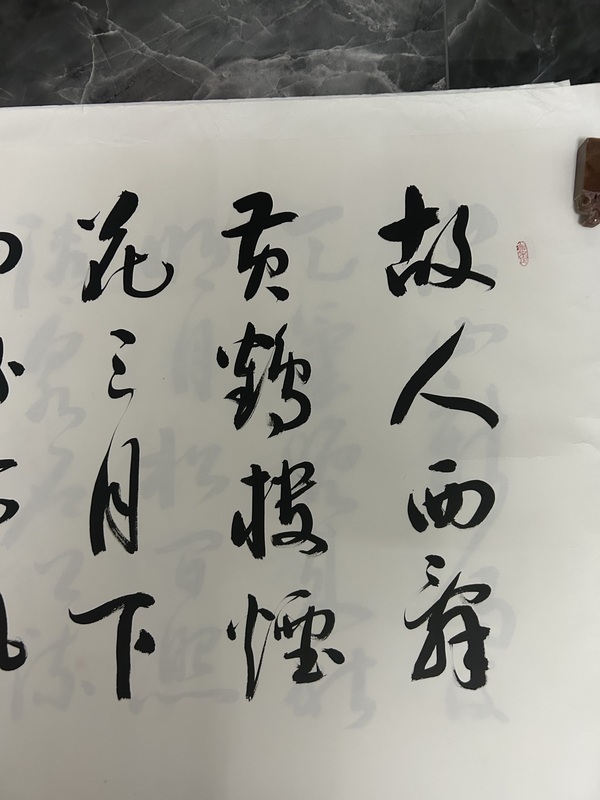 故人西辞
黄鹤楼煙
花三月下